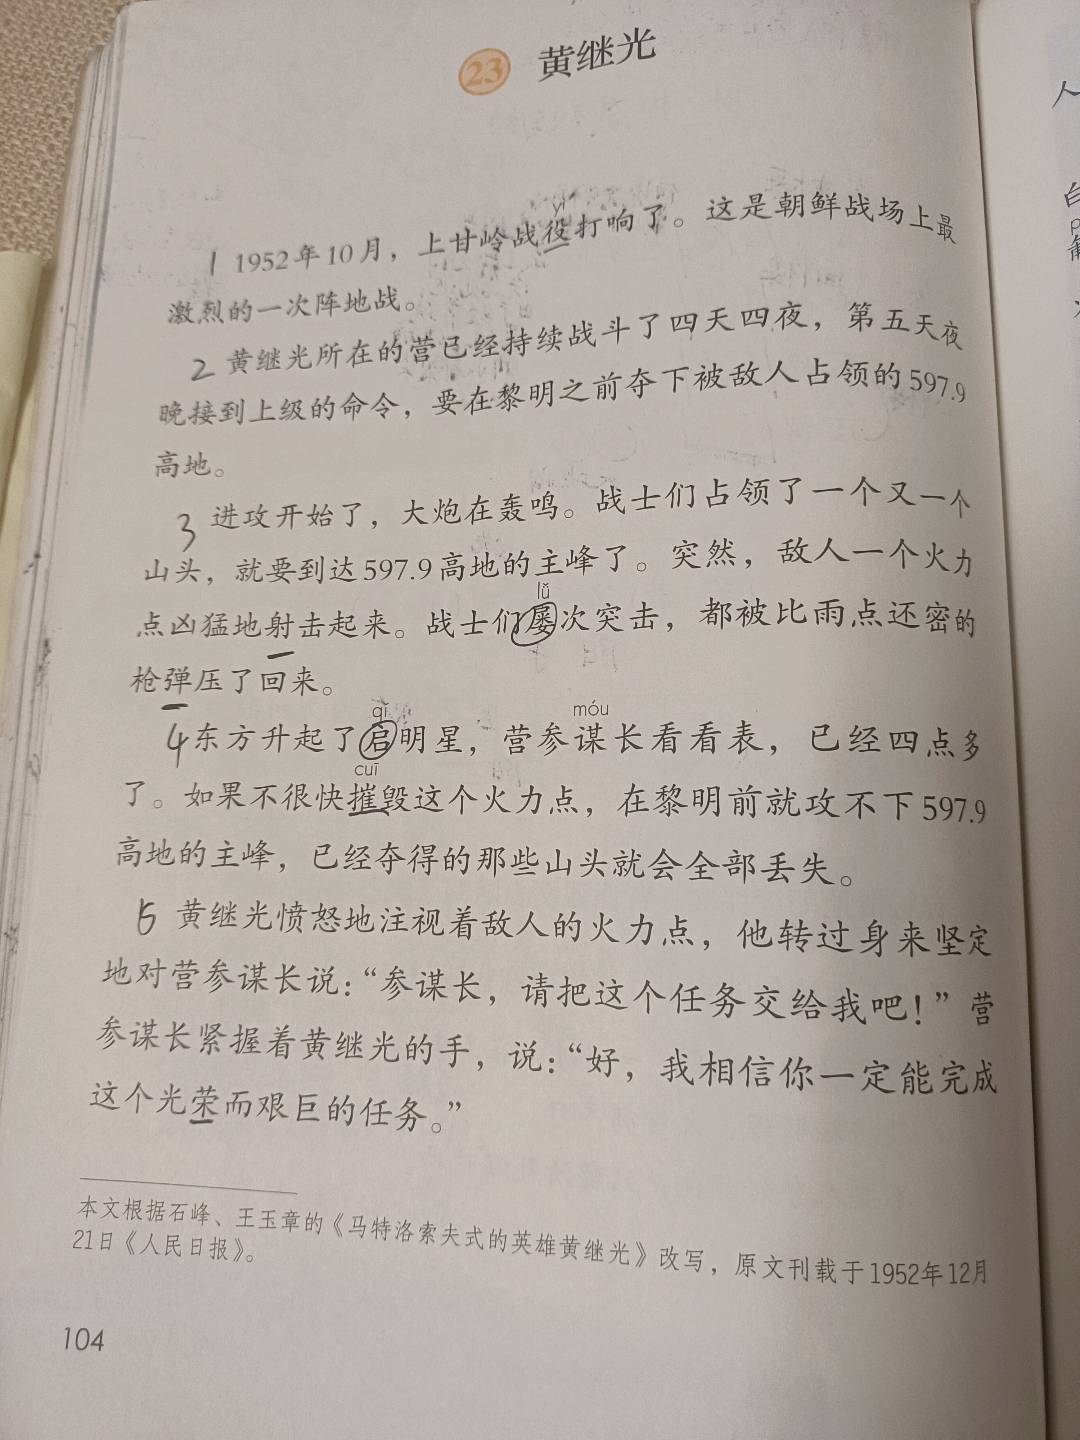 23 黄继光
yì
1 1952年10月，上甘岭战役打响了。这是朝鲜战场上最
激烈的一次阵地战。
2 黄继光所在的营已经持续战斗了四天四夜，第五天夜
晚接到上级的命令，要在黎明之前夺下被敌人占领的597.9
高地。
3 进攻开始了，大炮在轰鸣。战士们占领了一个又一个
山头，就要到达597.9高地的主峰了。突然，敌人一个火力
lǚ
点凶猛地射击起来。战士们屡次突击，都被比雨点还密的
枪弹压了回来。
qǐ móu
4 东方升起了启明星，营参谋长看看表，已经四点多
cuī
了。如果不很快摧毁这个火力点，在黎明前就攻不下597.9
高地的主峰，已经夺得的那些山头就会全部丢失。
5 黄继光愤怒地注视着敌人的火力点，他转过身来坚定
地对营参谋长说：“参谋长，请把这个任务交给我吧！”营
参谋长紧握着黄继光的手，说：“好，我相信你一定能完成
这个光荣而艰巨的任务。”
本文根据石峰、王玉章的《马特洛索夫式的英雄黄继光》改写，原文刊载于1952年12月
21日《人民日报》。
104